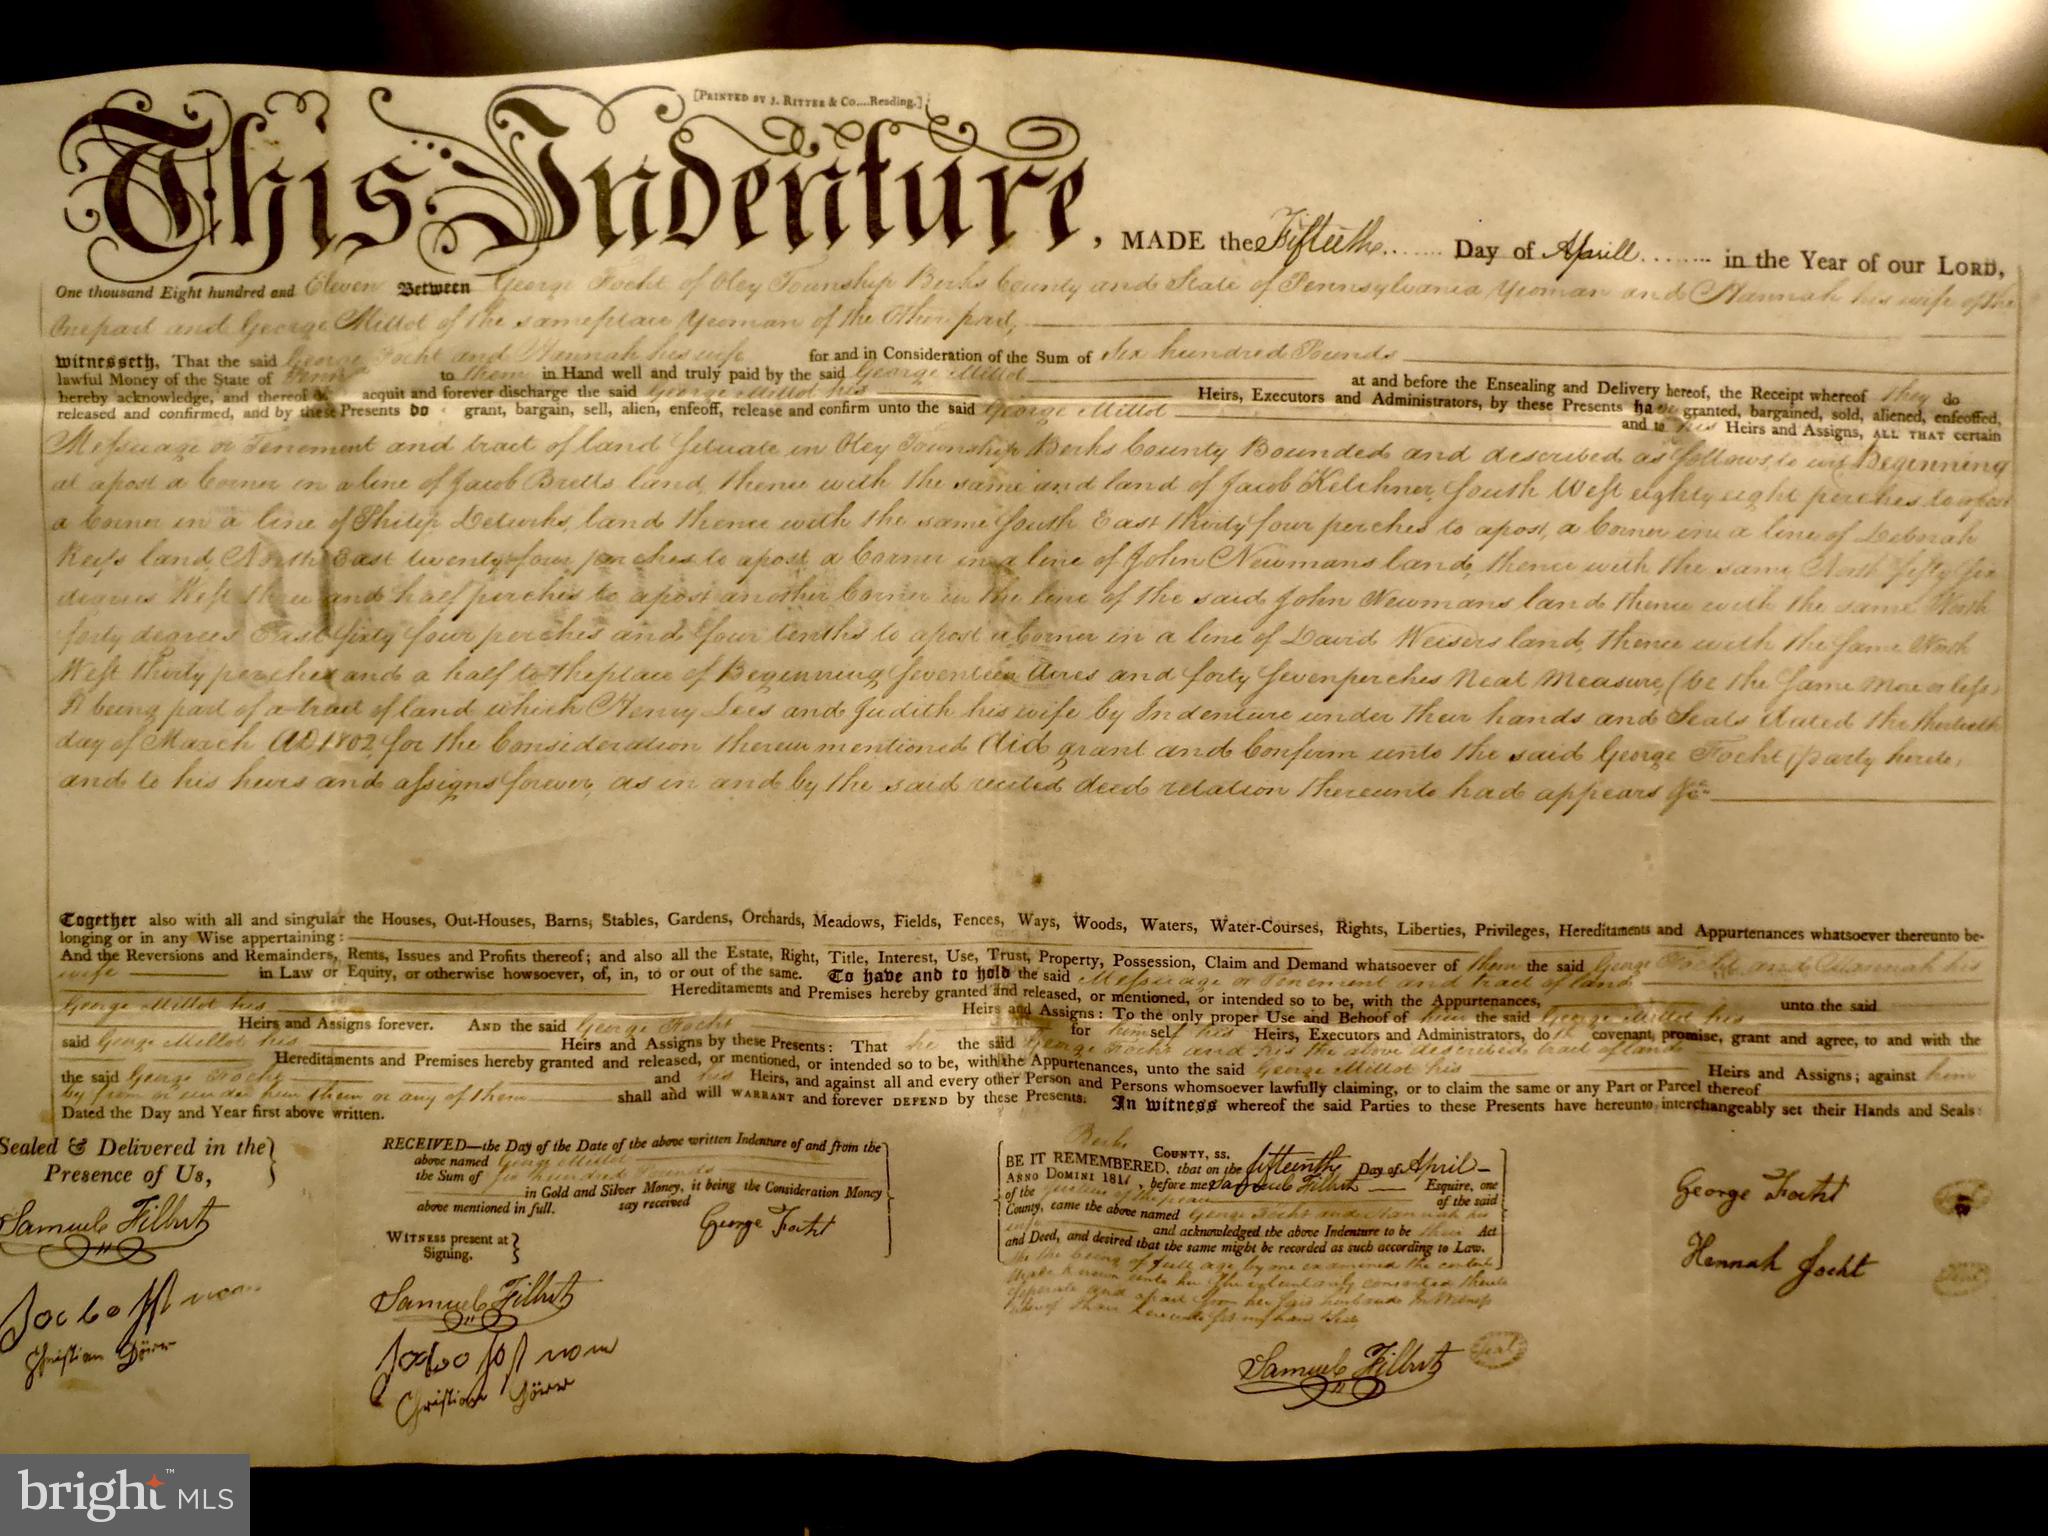 [PRINTED BY J. RITTER & Co....Reading.]
This Indenture, MADE the Fifteenth ....... Day of Aprill ........ in the Year of our LORD,
One thousand Eight hundred and Eleven Between George Focht of Oley Township Berks County and State of Pennsylvania Yeoman and Hannah his wife of the
One part and George Millot of the same place Yeoman of the Other part,
witnesseth, That the said George Focht and Hannah his wife for and in Consideration of the Sum of Six hundred Pounds
lawful Money of the State of Penn to them in Hand well and truly paid by the said George Millot at and before the Ensealing and Delivery hereof, the Receipt whereof they do
hereby acknowledge, and thereof acquit and forever discharge the said George Millot his Heirs, Executors and Administrators, by these Presents have granted, bargained, sold, aliened, enfeoffed,
released and confirmed, and by these Presents Do grant, bargain, sell, alien, enfeoff, release and confirm unto the said George Millot and to his Heirs and Assigns, ALL THAT certain
Messuage or Tenement and tract of land Situate in Oley Township Berks County Bounded and described as follows, to wit, Beginning
at a post a Corner in a line of Jacob Bretts land, thence with the same and land of Jacob Kelchner, South West eighty eight perches to a post
a Corner in a line of Philip Deturks, land thence with the same South East thirty four perches to a post, a Corner in a line of Deborah
land, North East twenty four perches to a post a Corner in a line of John Newmans land, thence with the same North fifty six
degrees West three and half perches to a post another Corner in the line of the said John Newmans land thence with the same North
forty degrees East sixty four perches and four tenths to a post a Corner in a line of David Weisers land, thence with the same North
West thirty perches and a half to the place of Beginning Seventeen Acres and forty Seven perches Neat Measure, (be the same more or less)
It being part of a tract of land which Henry Lees and Judith his wife by Indenture under their hands and Seals dated the thirtieth
day of March AD 1802, for the Consideration therein mentioned did grant and Confirm unto the said George Focht (party hereto,
and to his heirs and assigns forever, as in and by the said recited deed relation thereunto had appears &c
Together also with all and singular the Houses, Out-Houses, Barns, Stables, Gardens, Orchards, Meadows, Fields, Fences, Ways, Woods, Waters, Water-Courses, Rights, Liberties, Privileges, Hereditaments and Appurtenances whatsoever thereunto be-
longing or in any Wise appertaining:
And the Reversions and Remainders, Rents, Issues and Profits thereof; and also all the Estate, Right, Title, Interest, Use, Trust, Property, Possession, Claim and Demand whatsoever of them the said George Focht and Hannah his
wife in Law or Equity, or otherwise howsoever, of, in, to or out of the same. To have and to hold the said Messuage or Tenement and tract of land
Hereditaments and Premises hereby granted and released, or mentioned, or intended so to be, with the Appurtenances, unto the said
George Millot his Heirs and Assigns: To the only proper Use and Behoof of him the said George Millot his
Heirs and Assigns forever. AND the said George Focht for himself his Heirs, Executors and Administrators, do covenant, promise, grant and agree, to and with the
said George Millot his Heirs and Assigns by these Presents: That he the said George Focht and his the above described tract of land
Hereditaments and Premises hereby granted and released, or mentioned, or intended so to be, with the Appurtenances, unto the said George Millot his Heirs and Assigns; against him
the said George Focht and his Heirs, and against all and every other Person and Persons whomsoever lawfully claiming, or to claim the same or any Part or Parcel thereof
by from or under him them or any of them shall and will WARRANT and forever DEFEND by these Presents. In witness whereof the said Parties to these Presents have hereunto interchangeably set their Hands and Seals:
Dated the Day and Year first above written.
Sealed & Delivered in the
Presence of Us,
Samuel Filbert
Christian Dörr
RECEIVED—the Day of the Date of the above written Indenture of and from the
above named George Millot
the Sum of Six hundred Pounds
in Gold and Silver Money, it being the Consideration Money
above mentioned in full. say received
George Focht
WITNESS present at
Signing.
Samuel Filbert
Christian Dörr
Berks COUNTY, SS.
BE IT REMEMBERED, that on the fifteenth Day of April
ANNO DOMINI 1811, before me Samuel Filbert Esquire, one
of the Justices of the peace of the said
County, came the above named George Focht and Hannah his
wife and acknowledged the above Indenture to be their Act
and Deed, and desired that the same might be recorded as such according to Law.
She being of full age, by me examined the contents
made known unto her She voluntarily consented thereto
seperate and apart from her said husband In Witness
whereof I have hereunto set my hand & Seal
Samuel Filbert Seal
George Focht
Hannah Focht Seal
bright™ MLS